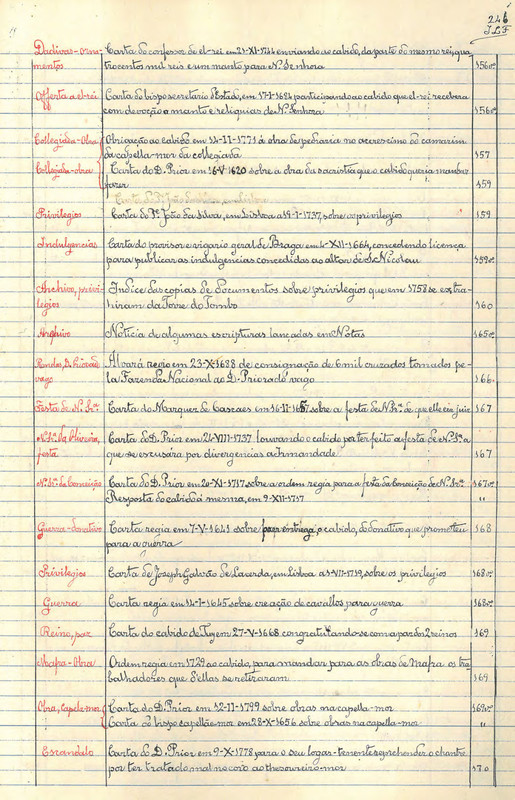 246
J.L.F
Dadivas-Orna- Carta do confessor de el-rei em 21-XI-1744 enviando ao cabido, da parte do mesmo rei, qua
mentos trocentos mil reis e um manto para N. Senhora 156vº
Offerta a el-rei Carta do bispo secretario d'Estado, em 17-I-1684 participando ao cabido que el-rei recebera
com devoção o manto e reliquias de N. Senhora 156vº
Collegiada-Obra Obrigação ao cabido em 14-II-1771 á obra de pedraria no acrescimo do camarim
da capella-mor da collegiada 157
Collegiada-obra Carta do D. Prior em 16-V-1620 sobre a obra da sacristia que o cabido queria mandar
fazer 159
Privilegios Carta do Pe João da Silva, em Lisboa a 19-I-1737, sobre os privilegios 159
Indulgencias Carta do provisor e vigario geral de Braga em 4-XII-1664, concedendo licença
para publicar as indulgencias concedidas ao altar de S. Nicolau 159vº
Archivo, privi- Indice das copias de documentos sobre privilegios que em 1758 se extra-
legios hiram da Torre do Tombo 160
Archivo Noticia de algumas escripturas lançadas em Notas 165vº
Rendas, D. Priorado Alvará regio em 23-X-1688 de consignação de 6 mil cruzados tomados pe-
vago la Fazenda Nacional ao D. Priorado vago 166
Festa de N. Srª Carta do Marquez de Cascaes em 16-II- sobre a festa de N. Srª de que elle era juiz 167
N. Srª da Oliveira, Carta do D. Prior em 21-VIII-1737 louvando o cabido por ter feito a festa de N. Srª a
festa que se escusara por divergencias a Irmandade 167
N. Srª da Conceição Carta do D. Prior em 20-XI-1717 sobre a ordem regia para a festa da Conceição de N. Srª 167vº
Resposta do cabido á mesma, em 9-XII-1717 "
Guerra-donativo Carta regia em 7-V-1641 sobre fazer entrega, o cabido, do donativo que prometteu 168
para a guerra
Privilegios Carta de Joseph Galvão de Lacerda, em Lisboa a 1-VII-1719, sobre os privilegios 168vº
Guerra Carta regia em 14-I-1645 sobre creação de cavallos para guerra 168vº
Reino, paz Carta do cabido de Tuy em 27-V-1668 congratulando-se com a paz dos 2 reinos 169
Mafra-Obra Ordem regia em 1729 ao cabido, para mandar para as obras de Mafra os tra-
balhadores que d'ellas se retiraram 169
Obra, capela-mor Carta do D. Prior em 12-II-1799 sobre obras na capella-mor 169vº
Carta do bispo capellão-mor em 28-X-1656 sobre obras na capella-mor "
Escandalo Carta do D. Prior em 9-X-1778 para o seu logar-tenente reprehender o chantre
por ter tratado mal no coro ao thesoureiro-mor 170